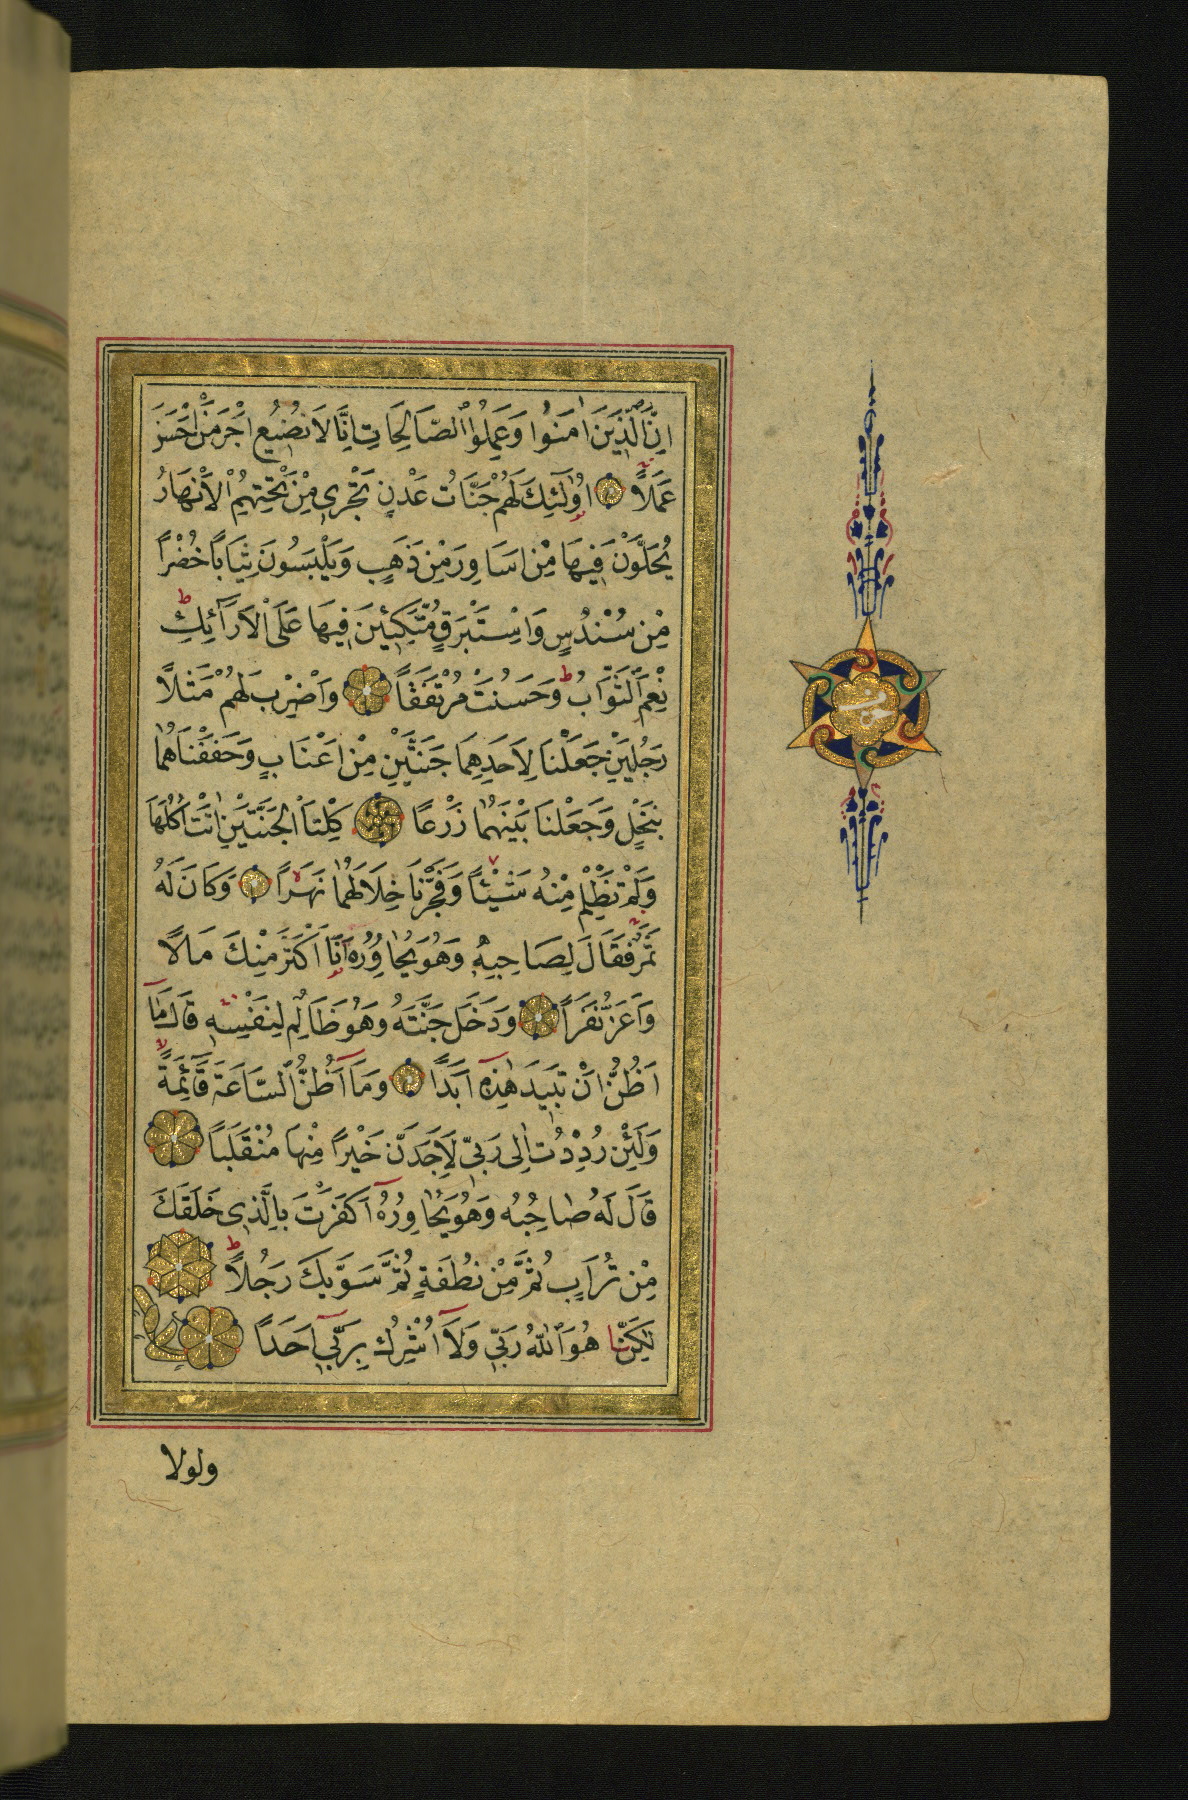 اِنَّ الَّذٖينَ اٰمَنُوا وَعَمِلُوا الصَّالِحَاتِ اِنَّا لَا نُضٖيعُ اَجْرَ مَنْ اَحْسَنَ
عَمَلًا اُولٰٓئِكَ لَهُمْ جَنَّاتُ عَدْنٍ تَجْرٖى مِنْ تَحْتِهِمُ الْاَنْهَارُ
يُحَلَّوْنَ فٖيهَا مِنْ اَسَاوِرَ مِنْ ذَهَبٍ وَيَلْبَسُونَ ثِيَابًا خُضْرًا
مِنْ سُنْدُسٍ وَاِسْتَبْرَقٍ مُتَّكِـٖٔينَ فٖيهَا عَلَى الْاَرَٓائِكِ
نِعْمَ الثَّوَابُ وَحَسُنَتْ مُرْتَفَقًا وَاضْرِبْ لَهُمْ مَثَلًا
رَجُلَيْنِ جَعَلْنَا لِاَحَدِهِمَا جَنَّتَيْنِ مِنْ اَعْنَابٍ وَحَفَفْنَاهُمَا
بِنَخْلٍ وَجَعَلْنَا بَيْنَهُمَا زَرْعًا كِلْتَا الْجَنَّتَيْنِ اٰتَتْ اُكُلَهَا
وَلَمْ تَظْلِمْ مِنْهُ شَيْـًٔا وَفَجَّرْنَا خِلَالَهُمَا نَهَرًا وَكَانَ لَهُ
ثَمَرٌ فَقَالَ لِصَاحِبِهٖ وَهُوَ يُحَاوِرُهُ اَنَا اَكْثَرُ مِنْكَ مَالًا
وَاَعَزُّ نَفَرًا وَدَخَلَ جَنَّتَهُ وَهُوَ ظَالِمٌ لِنَفْسِهٖ قَالَ مَٓا
اَظُنُّ اَنْ تَبٖيدَ هٰذِهٖٓ اَبَدًا وَمَٓا اَظُنُّ السَّاعَةَ قَٓائِمَةً
وَلَئِنْ رُدِدْتُ اِلٰى رَبّٖى لَاَجِدَنَّ خَيْرًا مِنْهَا مُنْقَلَبًا
قَالَ لَهُ صَاحِبُهُ وَهُوَ يُحَاوِرُهُٓ اَكَفَرْتَ بِالَّذٖى خَلَقَكَ
مِنْ تُرَابٍ ثُمَّ مِنْ نُطْفَةٍ ثُمَّ سَوّٰيكَ رَجُلًا
لٰكِنَّا هُوَ اللّٰهُ رَبّٖى وَلَٓا اُشْرِكُ بِرَبّٖٓى اَحَدًا
ولولا